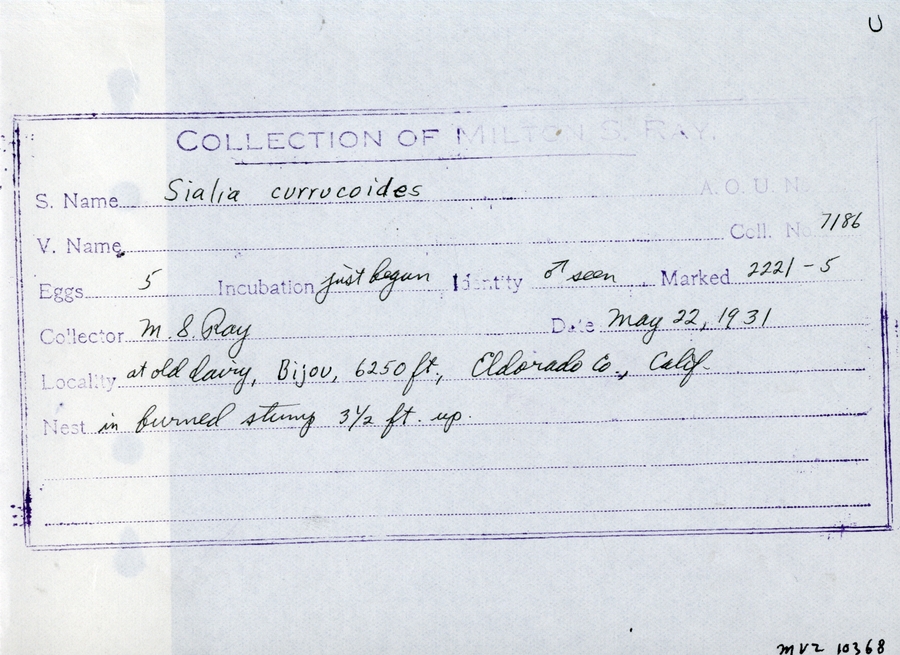 U
COLLECTION OF MILTON S. RAY.
S. Name Sialia currucoides A. O. U. N.
V. Name Coll. No 7186
Eggs 5 Incubation just begun Identity ♂ seen Marked 2221-5
Collector M. S. Ray Date May 22, 1931
Locality at old dairy, Bijou, 6250 ft., Eldorado Co., Calif.
Nest in burned stump 3½ ft. up.
MVZ 10368